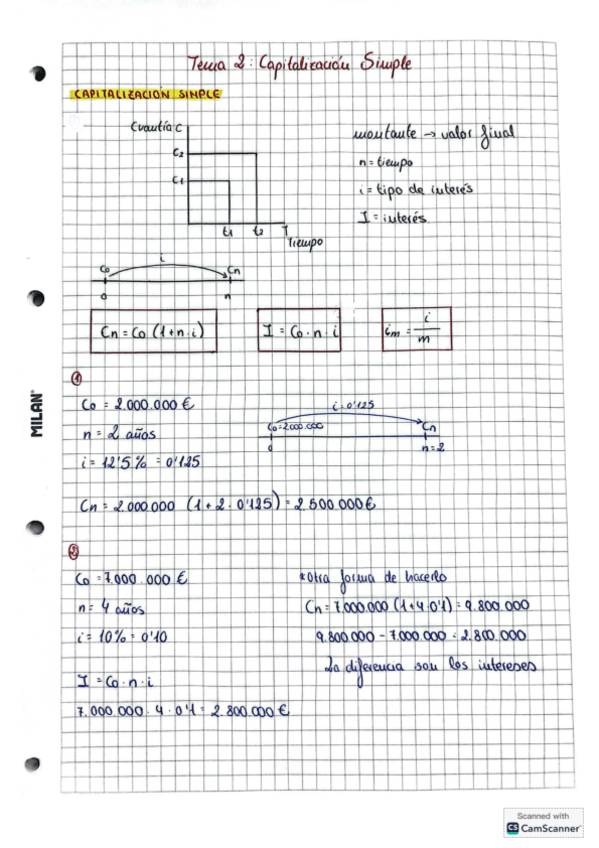 Tema 2: Capitalización Simple
CAPITALIZACIÓN SIMPLE
Cuantía C
C2
C1
t1 t2 T
Tiempo
montante → valor final
n = tiempo
i = tipo de interés
I = interés
i
Co Cn
0 n
Cn = Co (1+n·i)
I = Co·n·i
im = i/m
①
Co = 2.000.000 €
n = 2 años
i = 12'5% = 0'125
i=0'125
Co=2000.000 Cn
0 n=2
Cn = 2.000.000 (1+2·0'125) = 2.500.000€
②
Co = 7.000.000 €
n = 4 años
i = 10% = 0'10
I = Co·n·i
7.000.000·4·0'1 = 2.800.000 €
*Otra forma de hacerlo
Cn = 7.000.000 (1+4·0'1) = 9.800.000
9.800.000 - 7.000.000 = 2.800.000
La diferencia son los intereses
MILAN
Scanned with
CS CamScanner